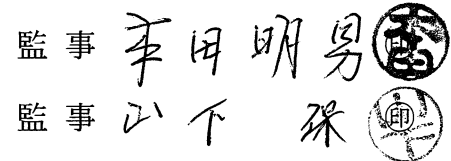 監事 田明男
監事 山下 保 印